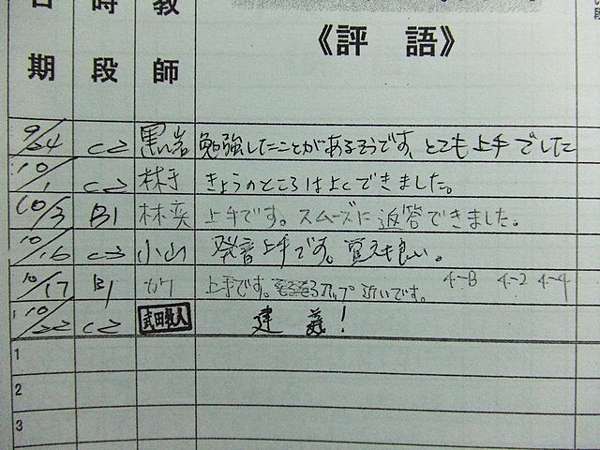 日期 時段 教師 《評 語》
9/24 C2 黒岩 勉強したことがあるそうです、とても上手でした
10/1 C2 林手 きょうのところはよくできました。
10/3 B1 林奕 上手です。スムーズに返答できました。
10/16 C3 小山 発音上手です。覚えも良い。
10/17 B1 上手です。アップ 近いです。 4-B 4-2 4-4
10/22 C2 武田 建 義!
1
2
3